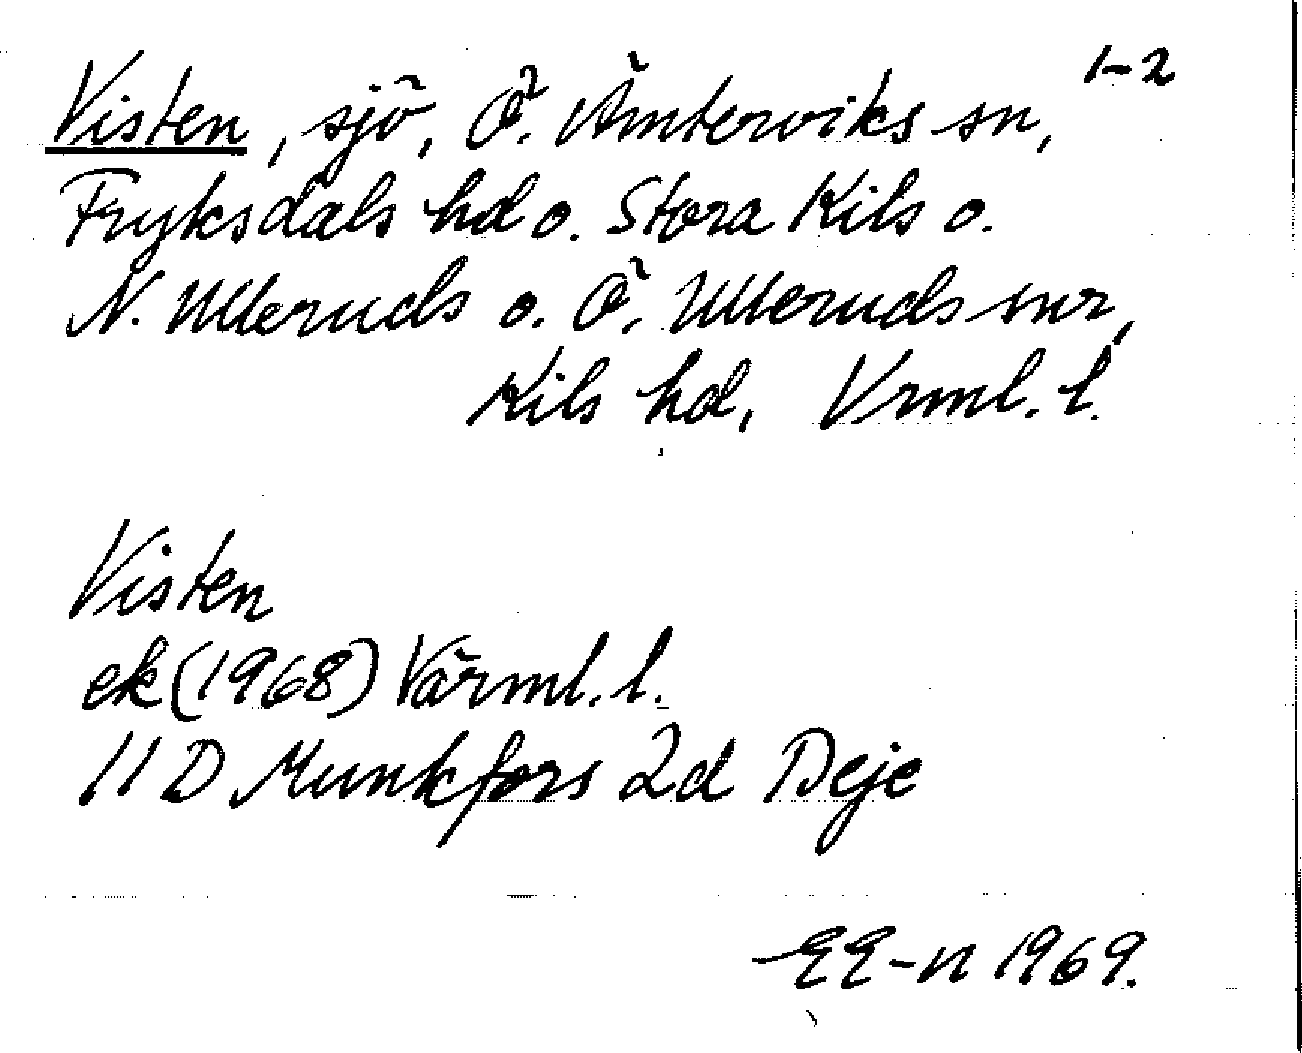 1-2
Visten, sjö, Ö. Ämterviks sn,
Fryksdals hd o. Stora Kils o.
N. Ulleruds o. Ö. Ulleruds snr,
Kils hd, Vrml. l.
Visten
ek (1968) Värml. l.
11 D Munkfors 2d Deje
EE-n 1969.